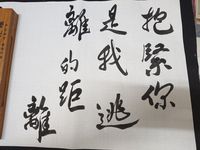 抱緊你
是我逃
離的距
離